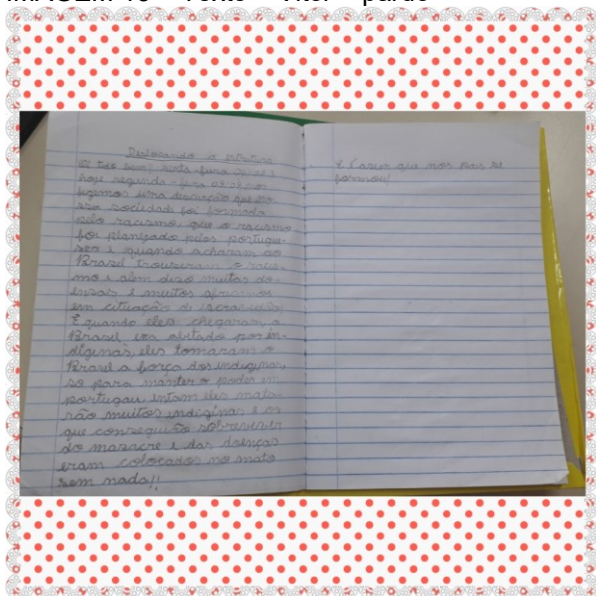 IMAGEM 10 - Texto - Vitor - pardo
Deslocando a estrutura
Oi tudo bem? sexta-feira e
hoje segunda-feira
fizemos uma discução que no
ssa sociedade foi formada
pelo racismo, que o racismo
foi planejado pelos portugue-
ses e quando acharam ao
Brasil trouxeram o racis-
mo e alem diso muitas do-
enças e muitos africanos
em cituação de
E quando eles chegaram, o
Brasil, era abitado por in-
diginas, eles tomaram o
Brasil a força dos indiginas,
so para manter o poder em
portugau, entam eles mata-
rão muitos indiginas e os
que conseguirão sobreviver
do masacre e das doenças
eram colocados no mato
sem nada!!
E é asim que nos pais se
formou!